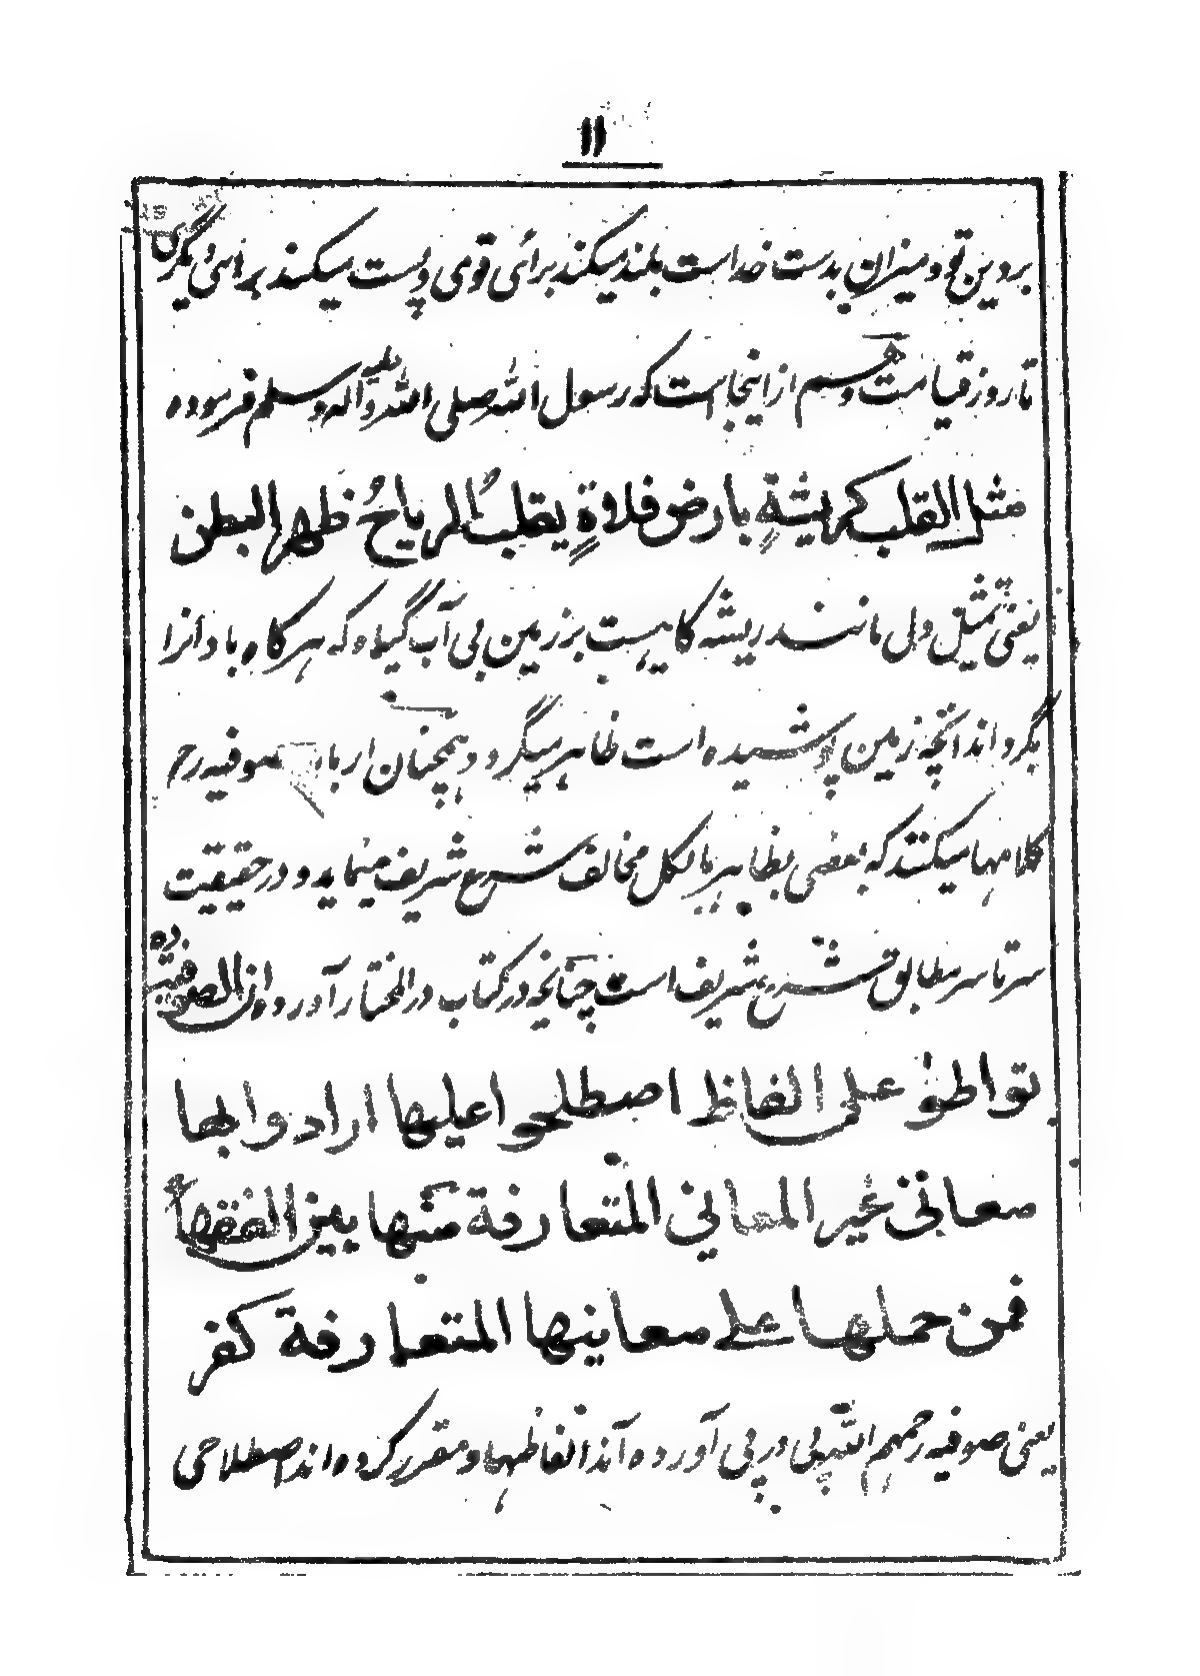 ۱۱
بر دین تو و میزان بدست خداست بلند میکند برائی قومی و پست میکند برائی دیگری
تا روز قیامت و هم از اینجاست که رسول الله صلی الله علیه واله وسلم فرموده
مثل القلب کریشةٍ بارض فلاةٍ یقلبُ الریاحُ ظهر البطن
یعنی تمثیل دل مانند ریشه کاهیست بر زمین بی آب گیاه که هرگاه باد آنرا
بگرداند آنچه زمین پوشیده است ظاهر میگردد همچنان ارباب صوفیه رح
کلامها میکنند که بعضی بظاهر بالکل مخالف شرع شریف مینماید و در حقیقت
سرتاسر مطابق شرع شریف است چنانچه در کتاب در المختار آورده ان الصوفیة
تواطؤ علی الفاظ اصطلحوا علیها ارادوا بها
معانی غیر المعانی المتعارفة منها بین الفقهاء
فمن حملها علی معانیها المتعارفة کفر
یعنی صوفیه رحمهم الله پی در پی آورده اند الفاظها و مقرر کرده اند اصطلاحی